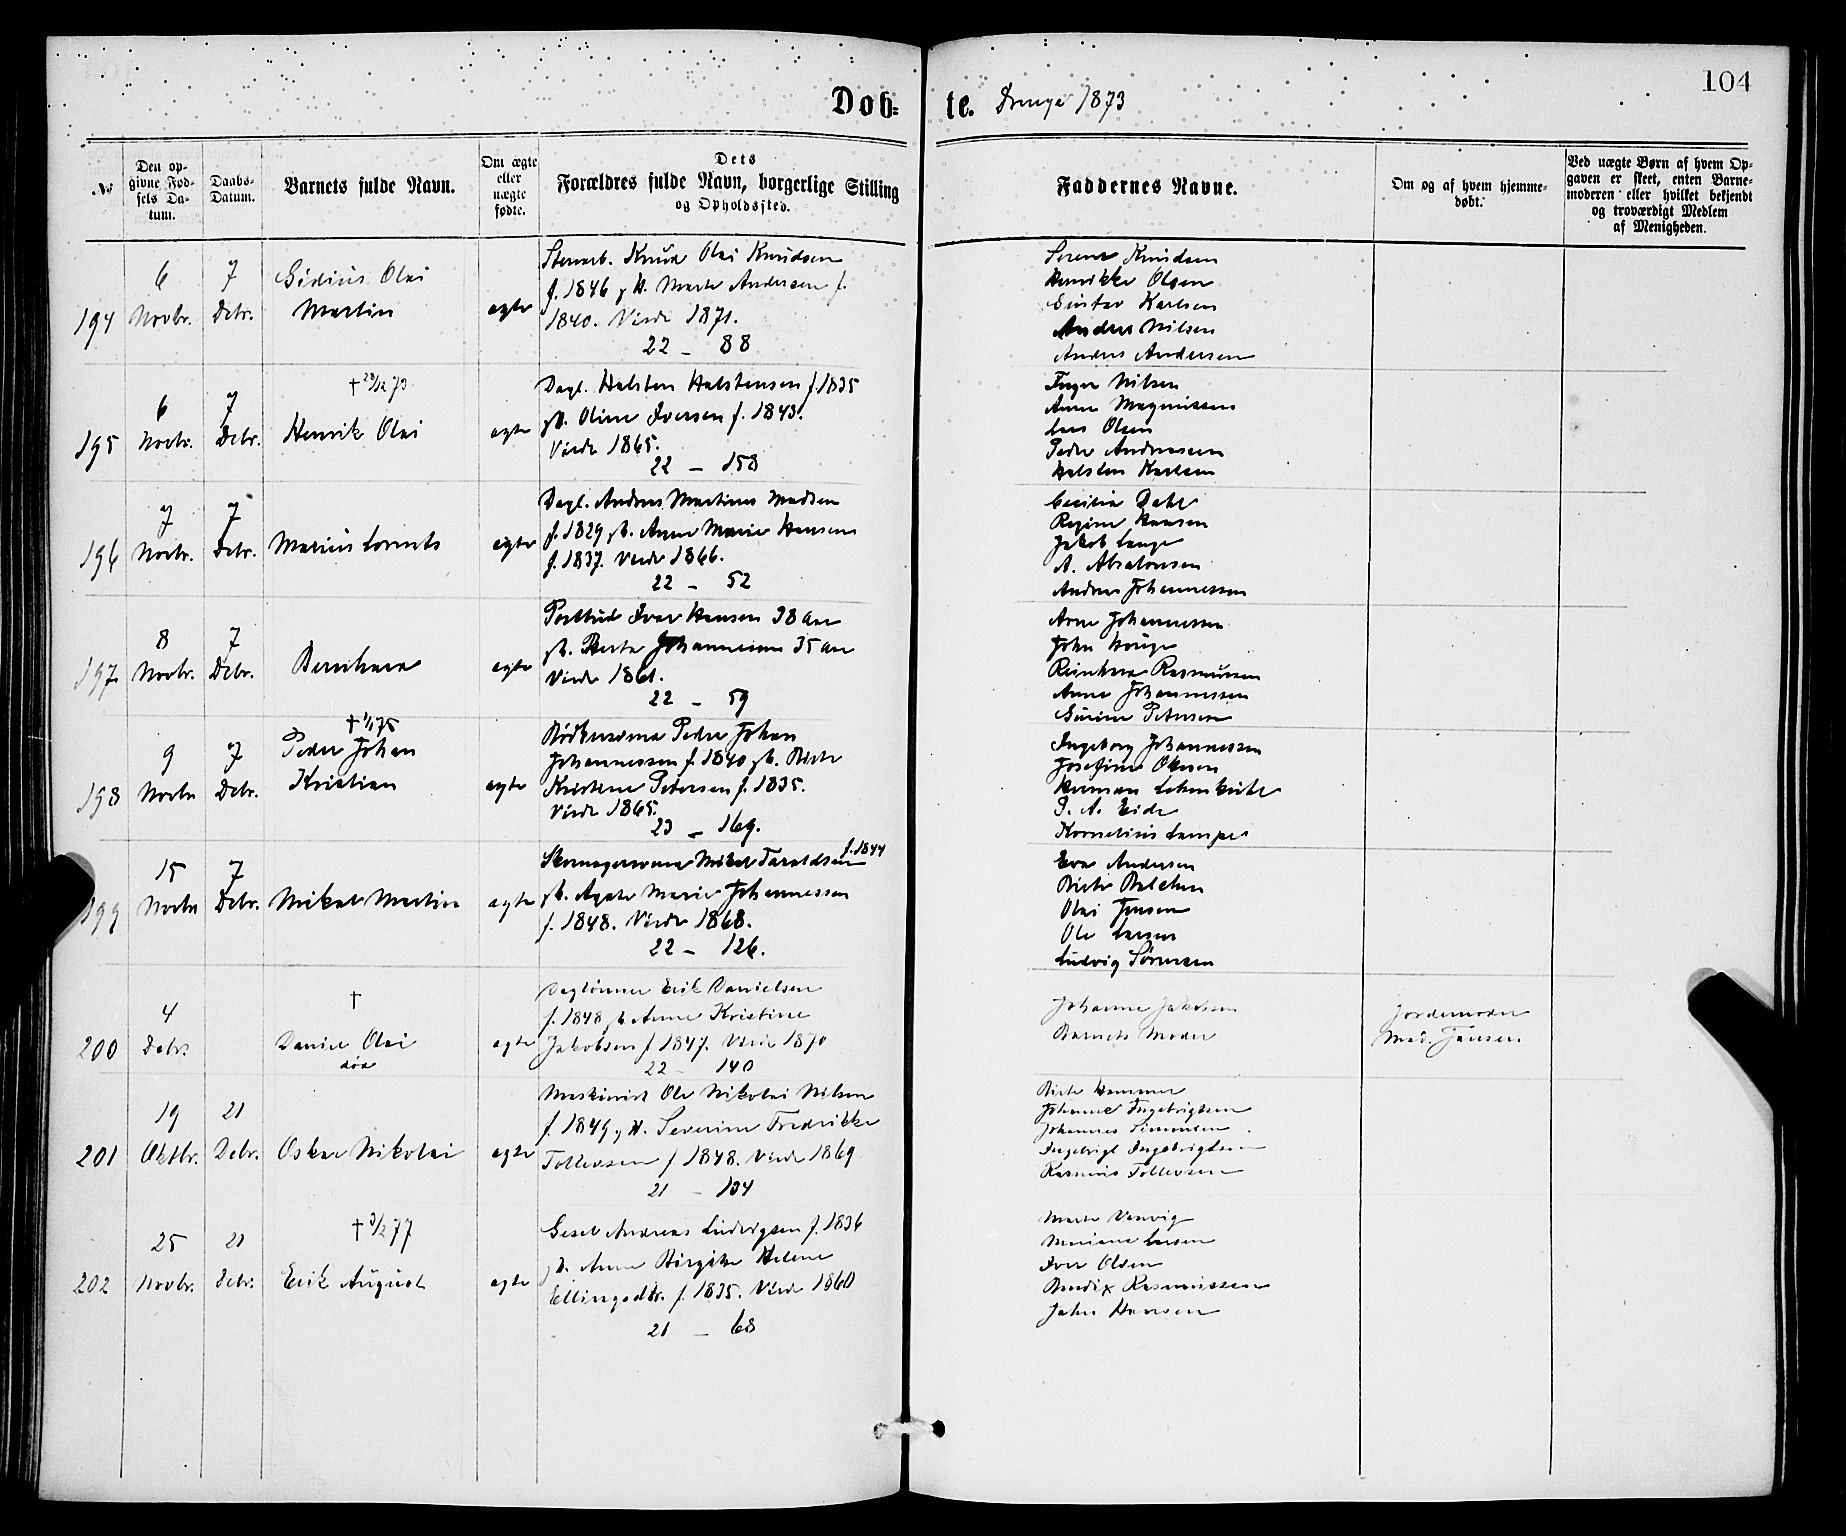 104
Døb= te. Drenge 1873
No
Den op-
givne Fød-
sels Da-
tum.
Daabs-
Datum.
Barnets fulde Navn.
Om ægte
eller
uægte
fødte.
Dets
Forældres fulde Navn, borgerlige Stilling
og Opholdssted.
Faddernes Navne.
Om og af hvem hjemme-
døbt.
Ved uægte Børn af hvem Op-
gaven er skeet, enten Barne-
moderen eller hvilket bekjendt
og troværdigt Medlem
af Menigheden.
194
6
Novbr.
7
Debr.
Sidius Olai
Martin
egte
Stenarb. Knud Olai Knudsen
f. 1846 g H. Marte Andersen f.
1840. Viede 1871.
22 - 88
Serene Knudsen
Henrikke Olsen
Gustav Karlsen
Anders Nilsen
Anders Andersen
195
6
Novbr.
7
Debr.
† 29/12 73
Henrik Olai
egte
Dagl. Halsten Halstensen f. 1835
g H. Oline Iversen f. 1843.
Viede 1865.
22 - 158
Inger Nilsen
Anne Magnussen
Lars Olsen
Peder Andreassen
Halsten Karlsen
196
7
Novbr.
7
Debr.
Marius Lorents
egte
Dagl. Andreas Martinus Madsen
f. 1829 g H. Anne Marie Hansen
f. 1837. Viede 1866.
22 - 52
Cecilia Dahl
Regine Hansen
Jakob Lange
A. Absalonsen
Andreas Johannessen
197
8
Novbr.
7
Debr.
Bernhard
egte
Postbud Ivar Hansen 38 Aar
g H. Berta Johannesen 35 Aar
Viede 1861.
22 - 59
Arne Johannessen
John Hauge
Reinhard Rasmussen
Anne Johannessen
Gurine Petersen
198
9
Novbr
7
Debr.
† 1/1 75
Peder Johan
Kristian
egte
Bødkersvend Peder Johan
Johannessen f. 1840 g H. Birte
Kristine Petersen f. 1835.
Viede 1865.
23 - 169.
Ingeborg Johannessen
Josefine Olsen
Herman Lehmkuhl
P. A. Eide
Kornelius Lampe
199
15
Novbr
7
Debr.
Mikal Martin
egte
Skomagersvend Mikel Taraldsen f. 1844
g H. Agate Marie Johannessen
f. 1848. Viede 1868.
22 - 126.
Eva Andersen
Birte Balchen
Olai Jensen
Ole Larsen
Ludvig Sørensen
200
4
Debr
†
Daniel Olai
død
egte
Daglønner Erik Danielsen
f. 1848 g H. Anne Kristine
Jakobsen f 1847. Viede 1870
22 - 140
Johanne Jakobsen
Barnets Moder
Jordemoder
Mad. Jansen
201
19
Oktbr.
21
Debr.
Oskar Nikolai
egte
Maskinist Ole Nikolai Nilsen
f. 1849 g H. Severine Fredrikke
Tollevsen f 1848. Viede 1869
21 - 134
Birte Hammer
Johanne Ingebrigtsen
Johannes Simonsen
Ingebrigt Ingebrigtsen
Rasmus Tollevsen
202
25
Novbr.
21
Debr.
† 3/2 77
Erik August
egte
Gesel Andreas Ludvigsen f. 1836
g H. Anne Birgitte Helene
Ellingsdtr. f. 1835. Viede 1860
21 - 68
Marte Vanvig
Mariane Larsen
Iver Olsen
Bendix Rasmussen
John Hansen